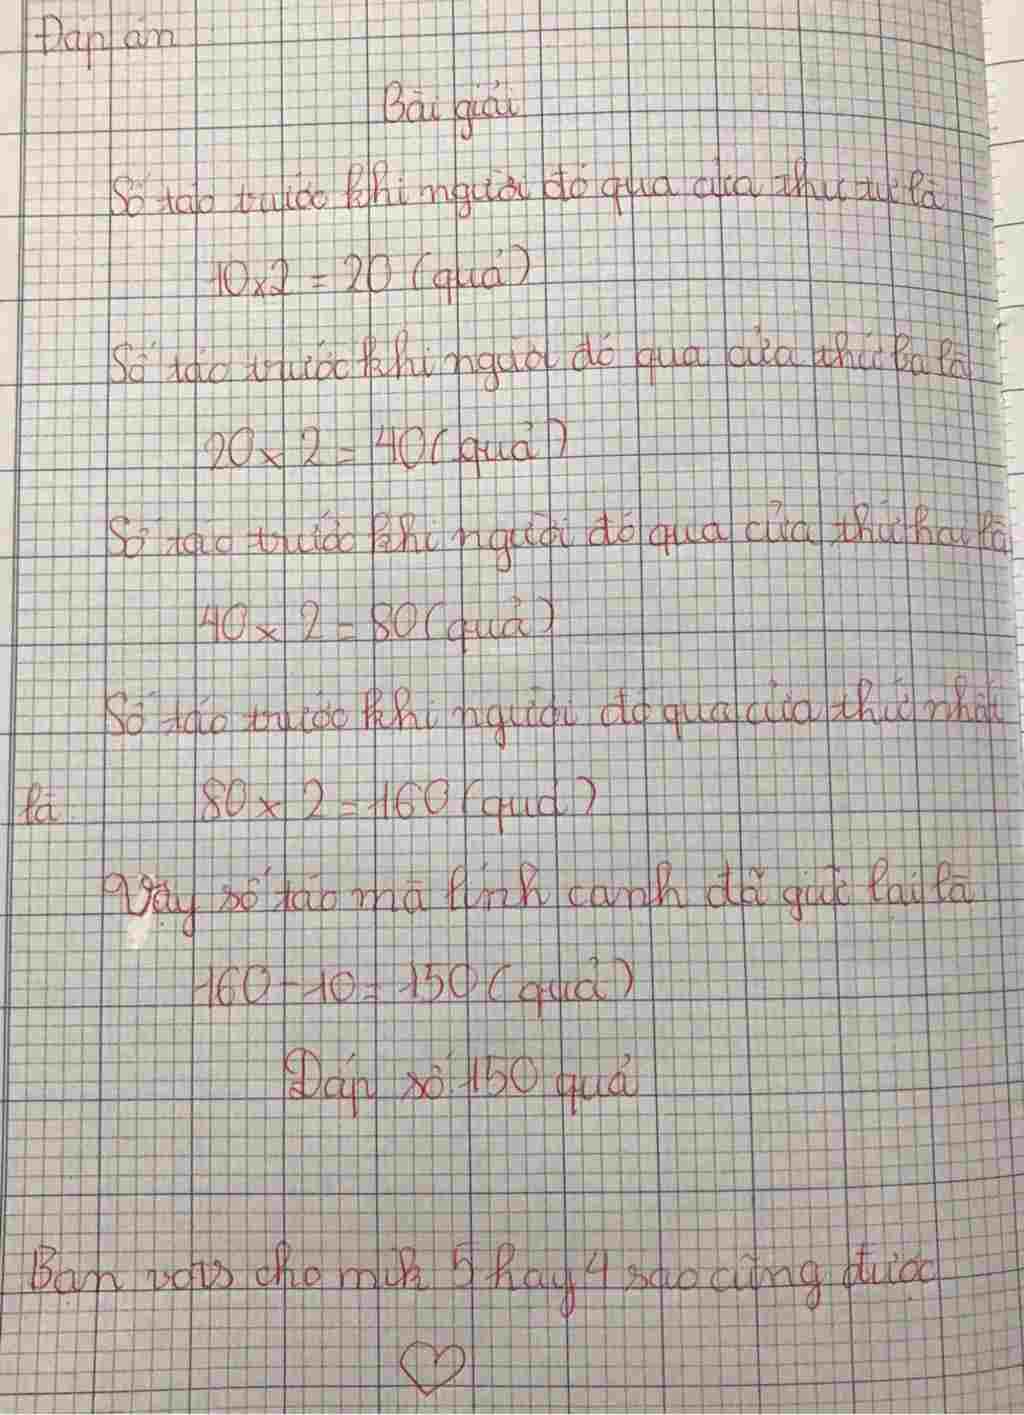 Đáp án
Bài giải
Số táo trước khi người đó qua cửa thứ tư là
10x2 = 20 (quả)
Số táo trước khi người đó qua cửa thứ ba là
20 x 2 = 40 (quả)
Số táo trước khi người đó qua cửa thứ hai là
40 x 2 = 80 (quả)
Số táo trước khi người đó qua cửa thứ nhất
là 80 x 2 = 160 (quả)
Vậy số táo mà lính canh đã giữ lại là
160 - 10 = 150 (quả)
Đáp số 150 quả
Bạn vote cho mik 5 hay 4 sao cũng được